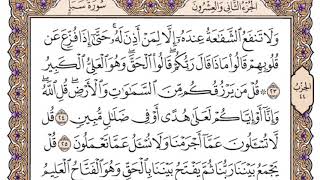 الجزء الثاني والعشرون
سورة سبإ
وَلَا تَنفَعُ ٱلشَّفَٰعَةُ عِندَهُۥٓ إِلَّا لِمَنۡ أَذِنَ لَهُۥۚ حَتَّىٰٓ إِذَا فُزِّعَ عَن
قُلُوبِهِمۡ قَالُواْ مَاذَا قَالَ رَبُّكُمۡۖ قَالُواْ ٱلۡحَقَّۖ وَهُوَ ٱلۡعَلِيُّ ٱلۡكَبِيرُ
٢٣ ۞ قُلۡ مَن يَرۡزُقُكُم مِّنَ ٱلسَّمَٰوَٰتِ وَٱلۡأَرۡضِۖ قُلِ ٱللَّهُۖ
وَإِنَّآ أَوۡ إِيَّاكُمۡ لَعَلَىٰ هُدًى أَوۡ فِي ضَلَٰلٖ مُّبِينٖ ٢٤ قُل
لَّا تُسۡـَٔلُونَ عَمَّآ أَجۡرَمۡنَا وَلَا نُسۡـَٔلُ عَمَّا تَعۡمَلُونَ ٢٥ قُلۡ
يَجۡمَعُ بَيۡنَنَا رَبُّنَا ثُمَّ يَفۡتَحُ بَيۡنَنَا بِٱلۡحَقِّ وَهُوَ ٱلۡفَتَّاحُ ٱلۡعَلِيمُ
الحزب
٤٤